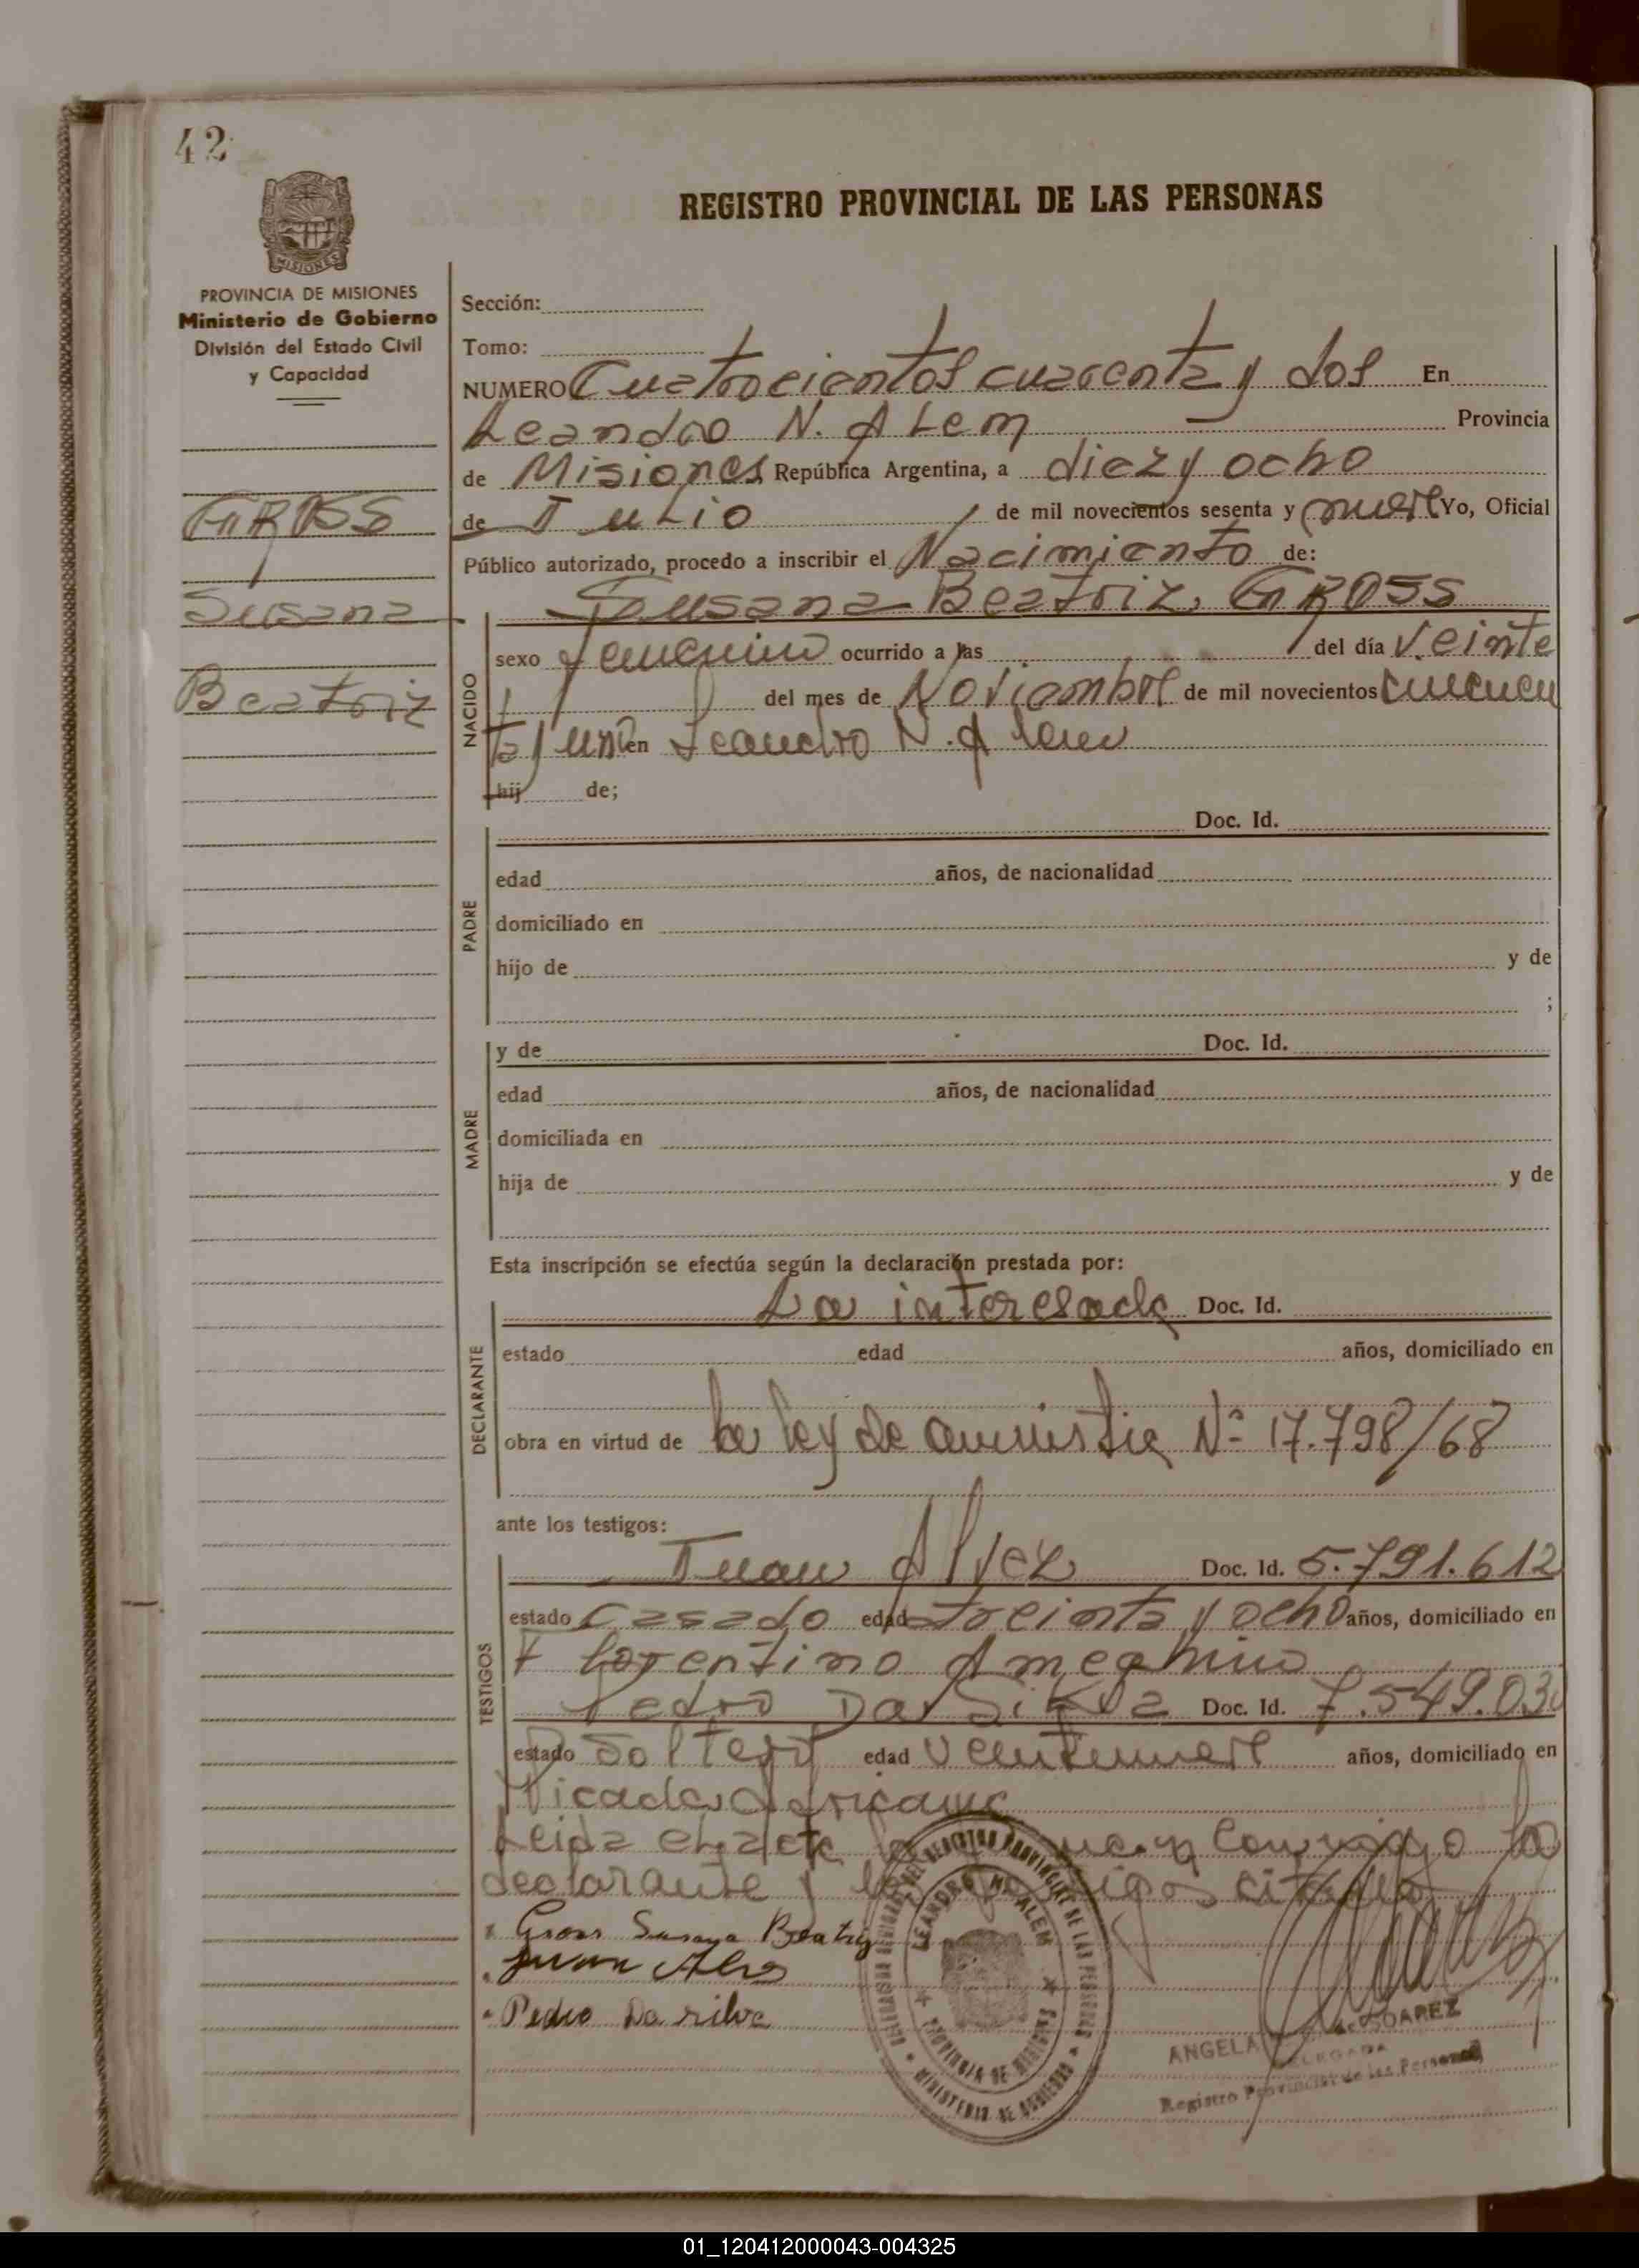 42
REGISTRO PROVINCIAL DE LAS PERSONAS
MISIONES
PROVINCIA DE MISIONES
Ministerio de Gobierno
División del Estado Civil
y Capacidad
GROSS
Susana
Beatriz
Sección:
Tomo:
NUMERO Cuatrocientos cuarenta y dos En
Leandro N. Alem Provincia
de Misiones República Argentina, a diez y ocho
de Julio de mil novecientos sesenta y nueve Yo, Oficial
Público autorizado, procedo a inscribir el Nacimiento de:
Susana Beatriz GROSS
NACIDO
sexo femenino ocurrido a las del día veinte
del mes de Noviembre de mil novecientos cincuen
ta y uno en Leandro N. Alem
hij de;
PADRE
Doc. Id.
edad años, de nacionalidad
domiciliado en
hijo de y de
;
MADRE
y de Doc. Id.
edad años, de nacionalidad
domiciliada en
hija de y de
Esta inscripción se efectúa según la declaración prestada por:
DECLARANTE
La interesada Doc. Id.
estado edad años, domiciliado en
obra en virtud de la ley de amnistia Nº 17.798/68
ante los testigos:
TESTIGOS
Juan Alvez Doc. Id. 5.791.612
estado Casado edad treinta y ocho años, domiciliado en
Florentino Ameghino
Pedro Da Silva Doc. Id. 7.549.030
estado Soltero edad veintinueve años, domiciliado en
Picada Africana
Leida el acta la conmigo la
declarante y los testigos citados
Gross Susana Beatriz
Juan Alves
Pedro Da silva
DEL REGISTRO PROVINCIAL DE LAS PERSONAS
LEANDRO N. ALEM
PROVINCIA DE MISIONES
MINISTERIO DE GOBIERNO
ANGELA de SOAREZ
DELEGADA
Registro Provincial de las Personas
01_120412000043-004325